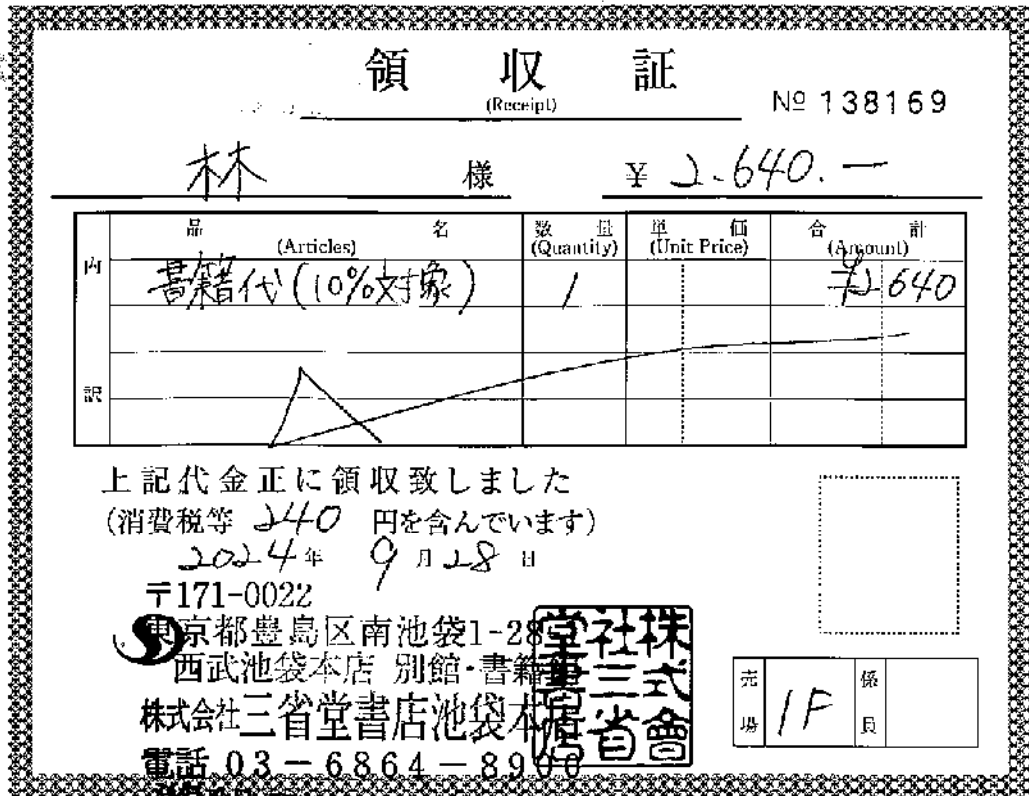 領 収 証
(Receipt)
№ 138169
林 様 ¥ 2.640.—
内訳
品名 (Articles) 数量 (Quantity) 単価 (Unit Price) 合計 (Amount)
書籍代(10%対象) 1 ¥2640
上記代金正に領収致しました
(消費税等 240 円を含んでいます)
2024年 9月28日
〒171-0022
東京都豊島区南池袋1-28
西武池袋本店 別館・書籍館
株式会社三省堂書店池袋本店
電話 03-6864-8900
株式會社三省堂書店
売場 1F 係員